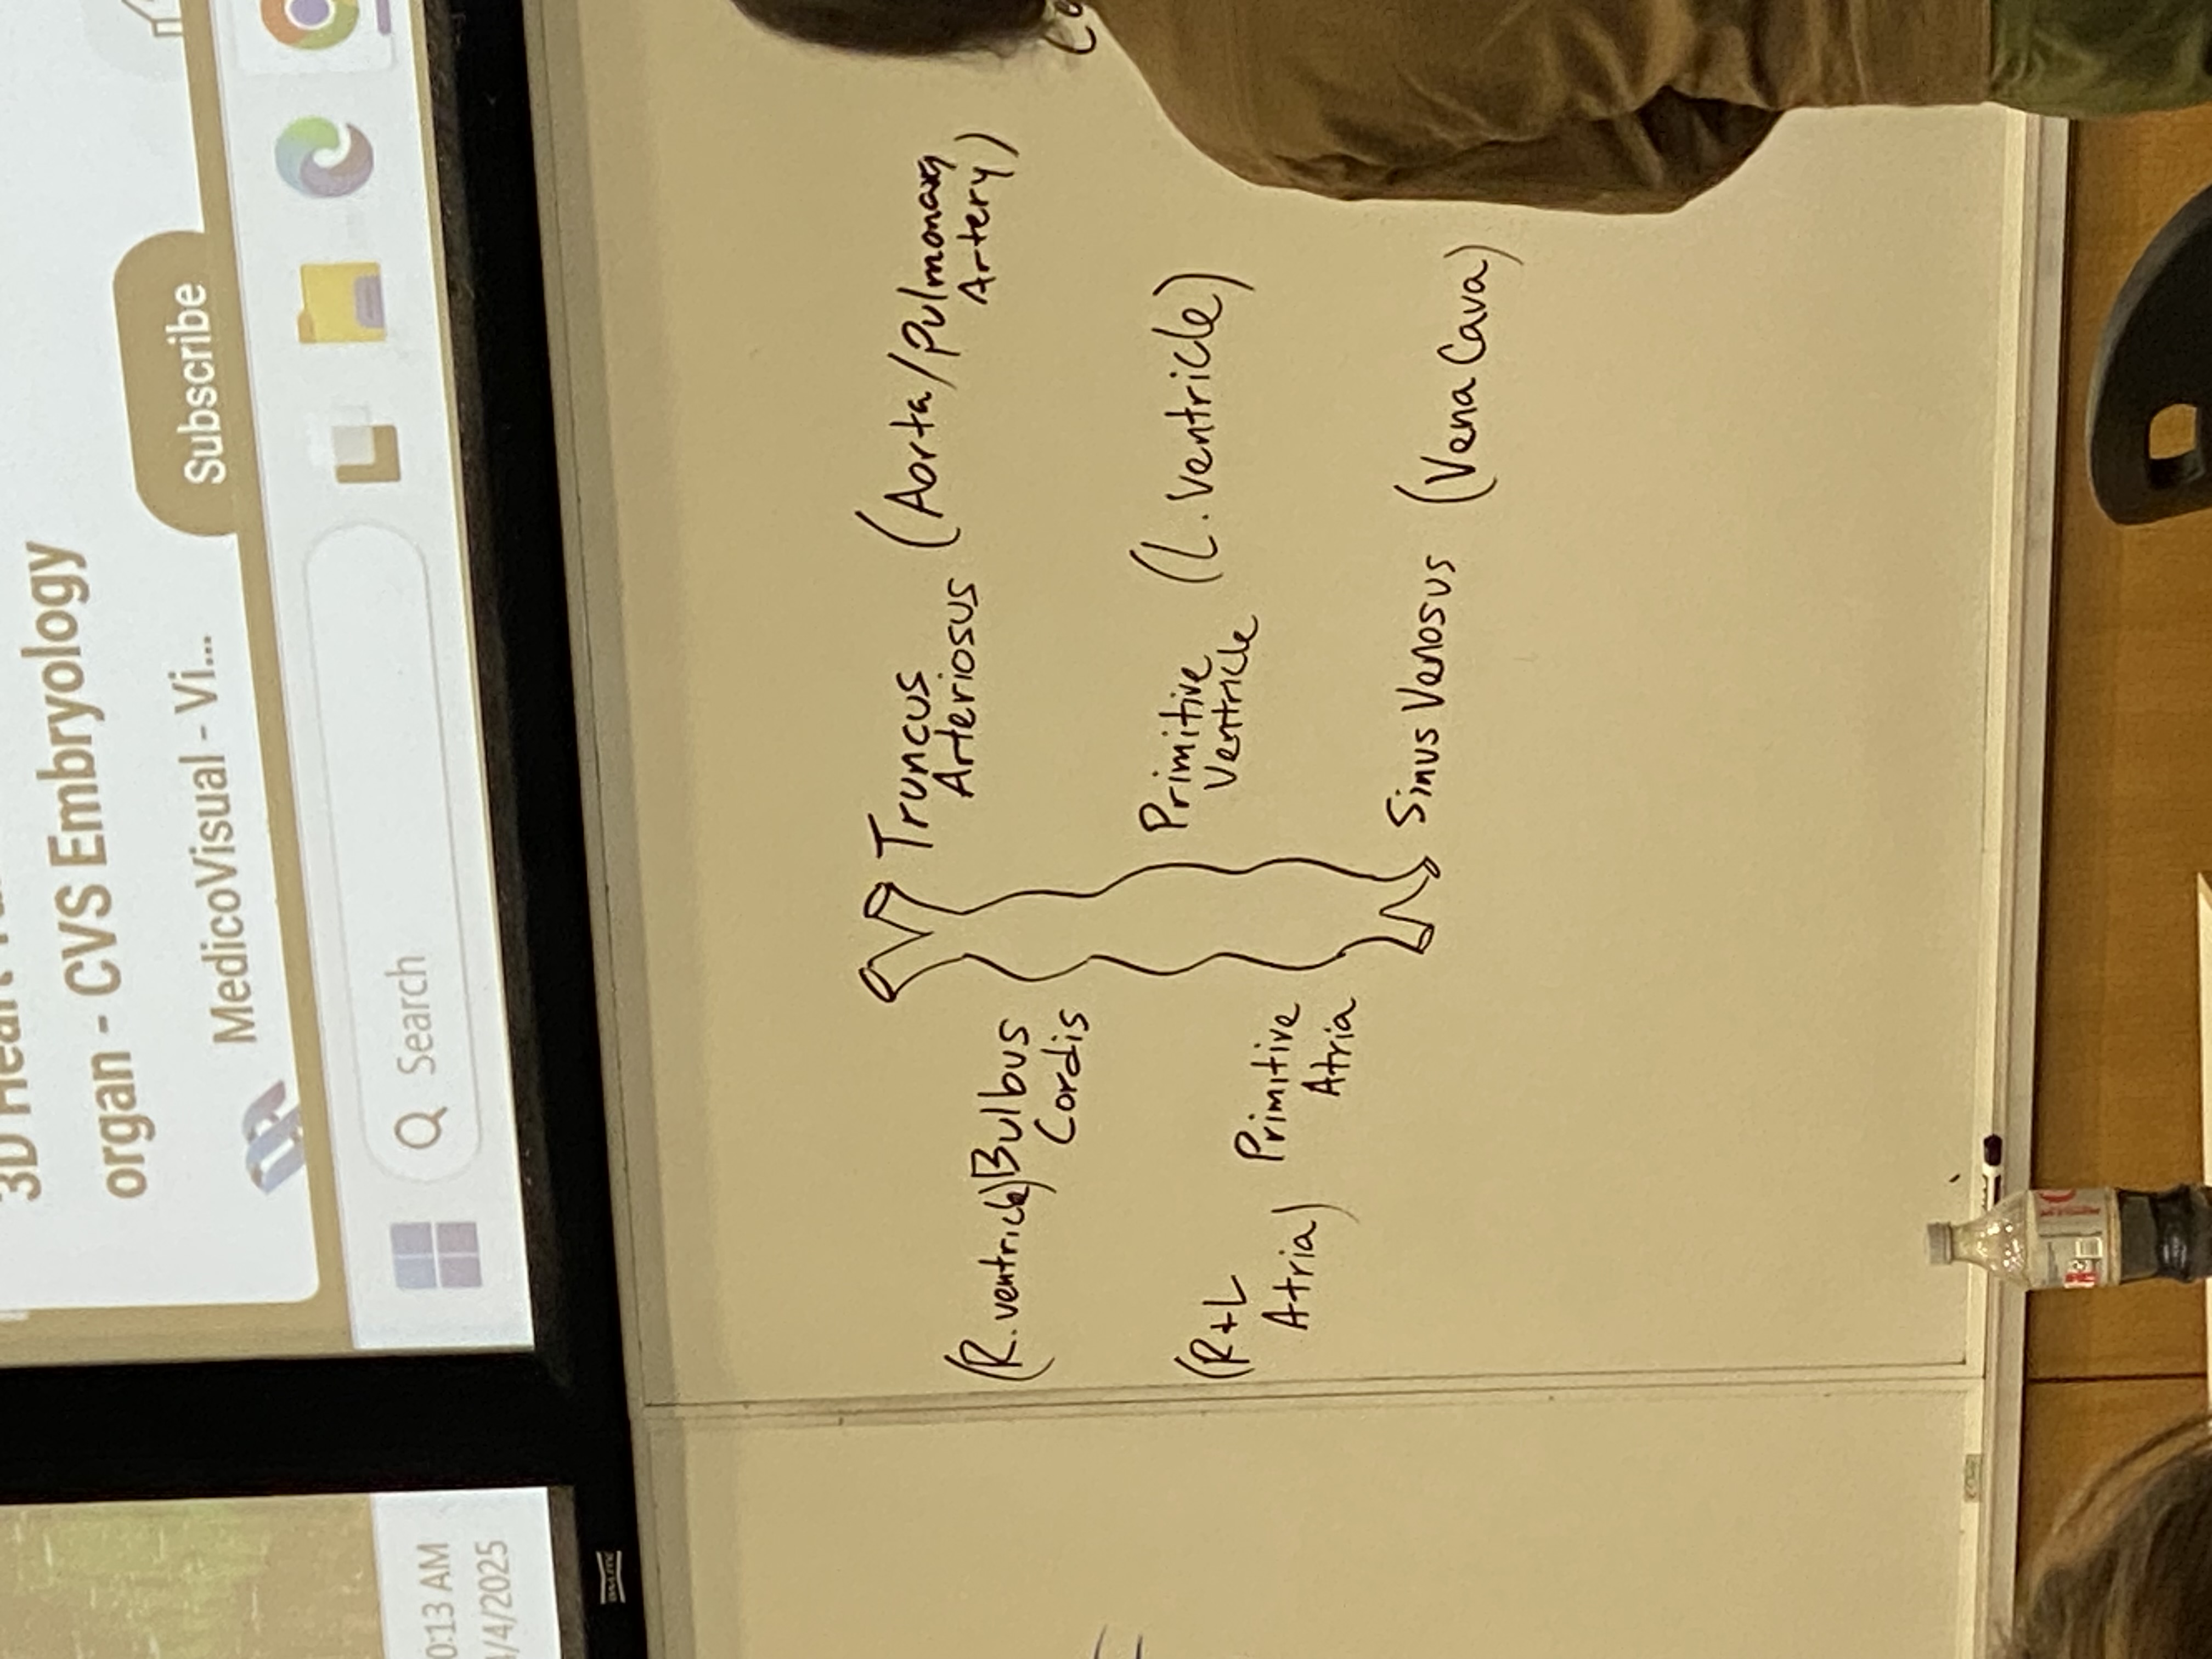 organ - CVS Embryology
MedicoVisual - Vi...
Subscribe
Search
0:13 AM
/4/2025
Truncus
Arteriosus
(Aorta/Pulmonary
Artery)
(R.ventricle)
Bulbus
Cordis
Primitive
Ventricle
(L.ventricle)
(R+L
Atria)
Primitive
Atria
Sinus Venosus (Vena Cava)